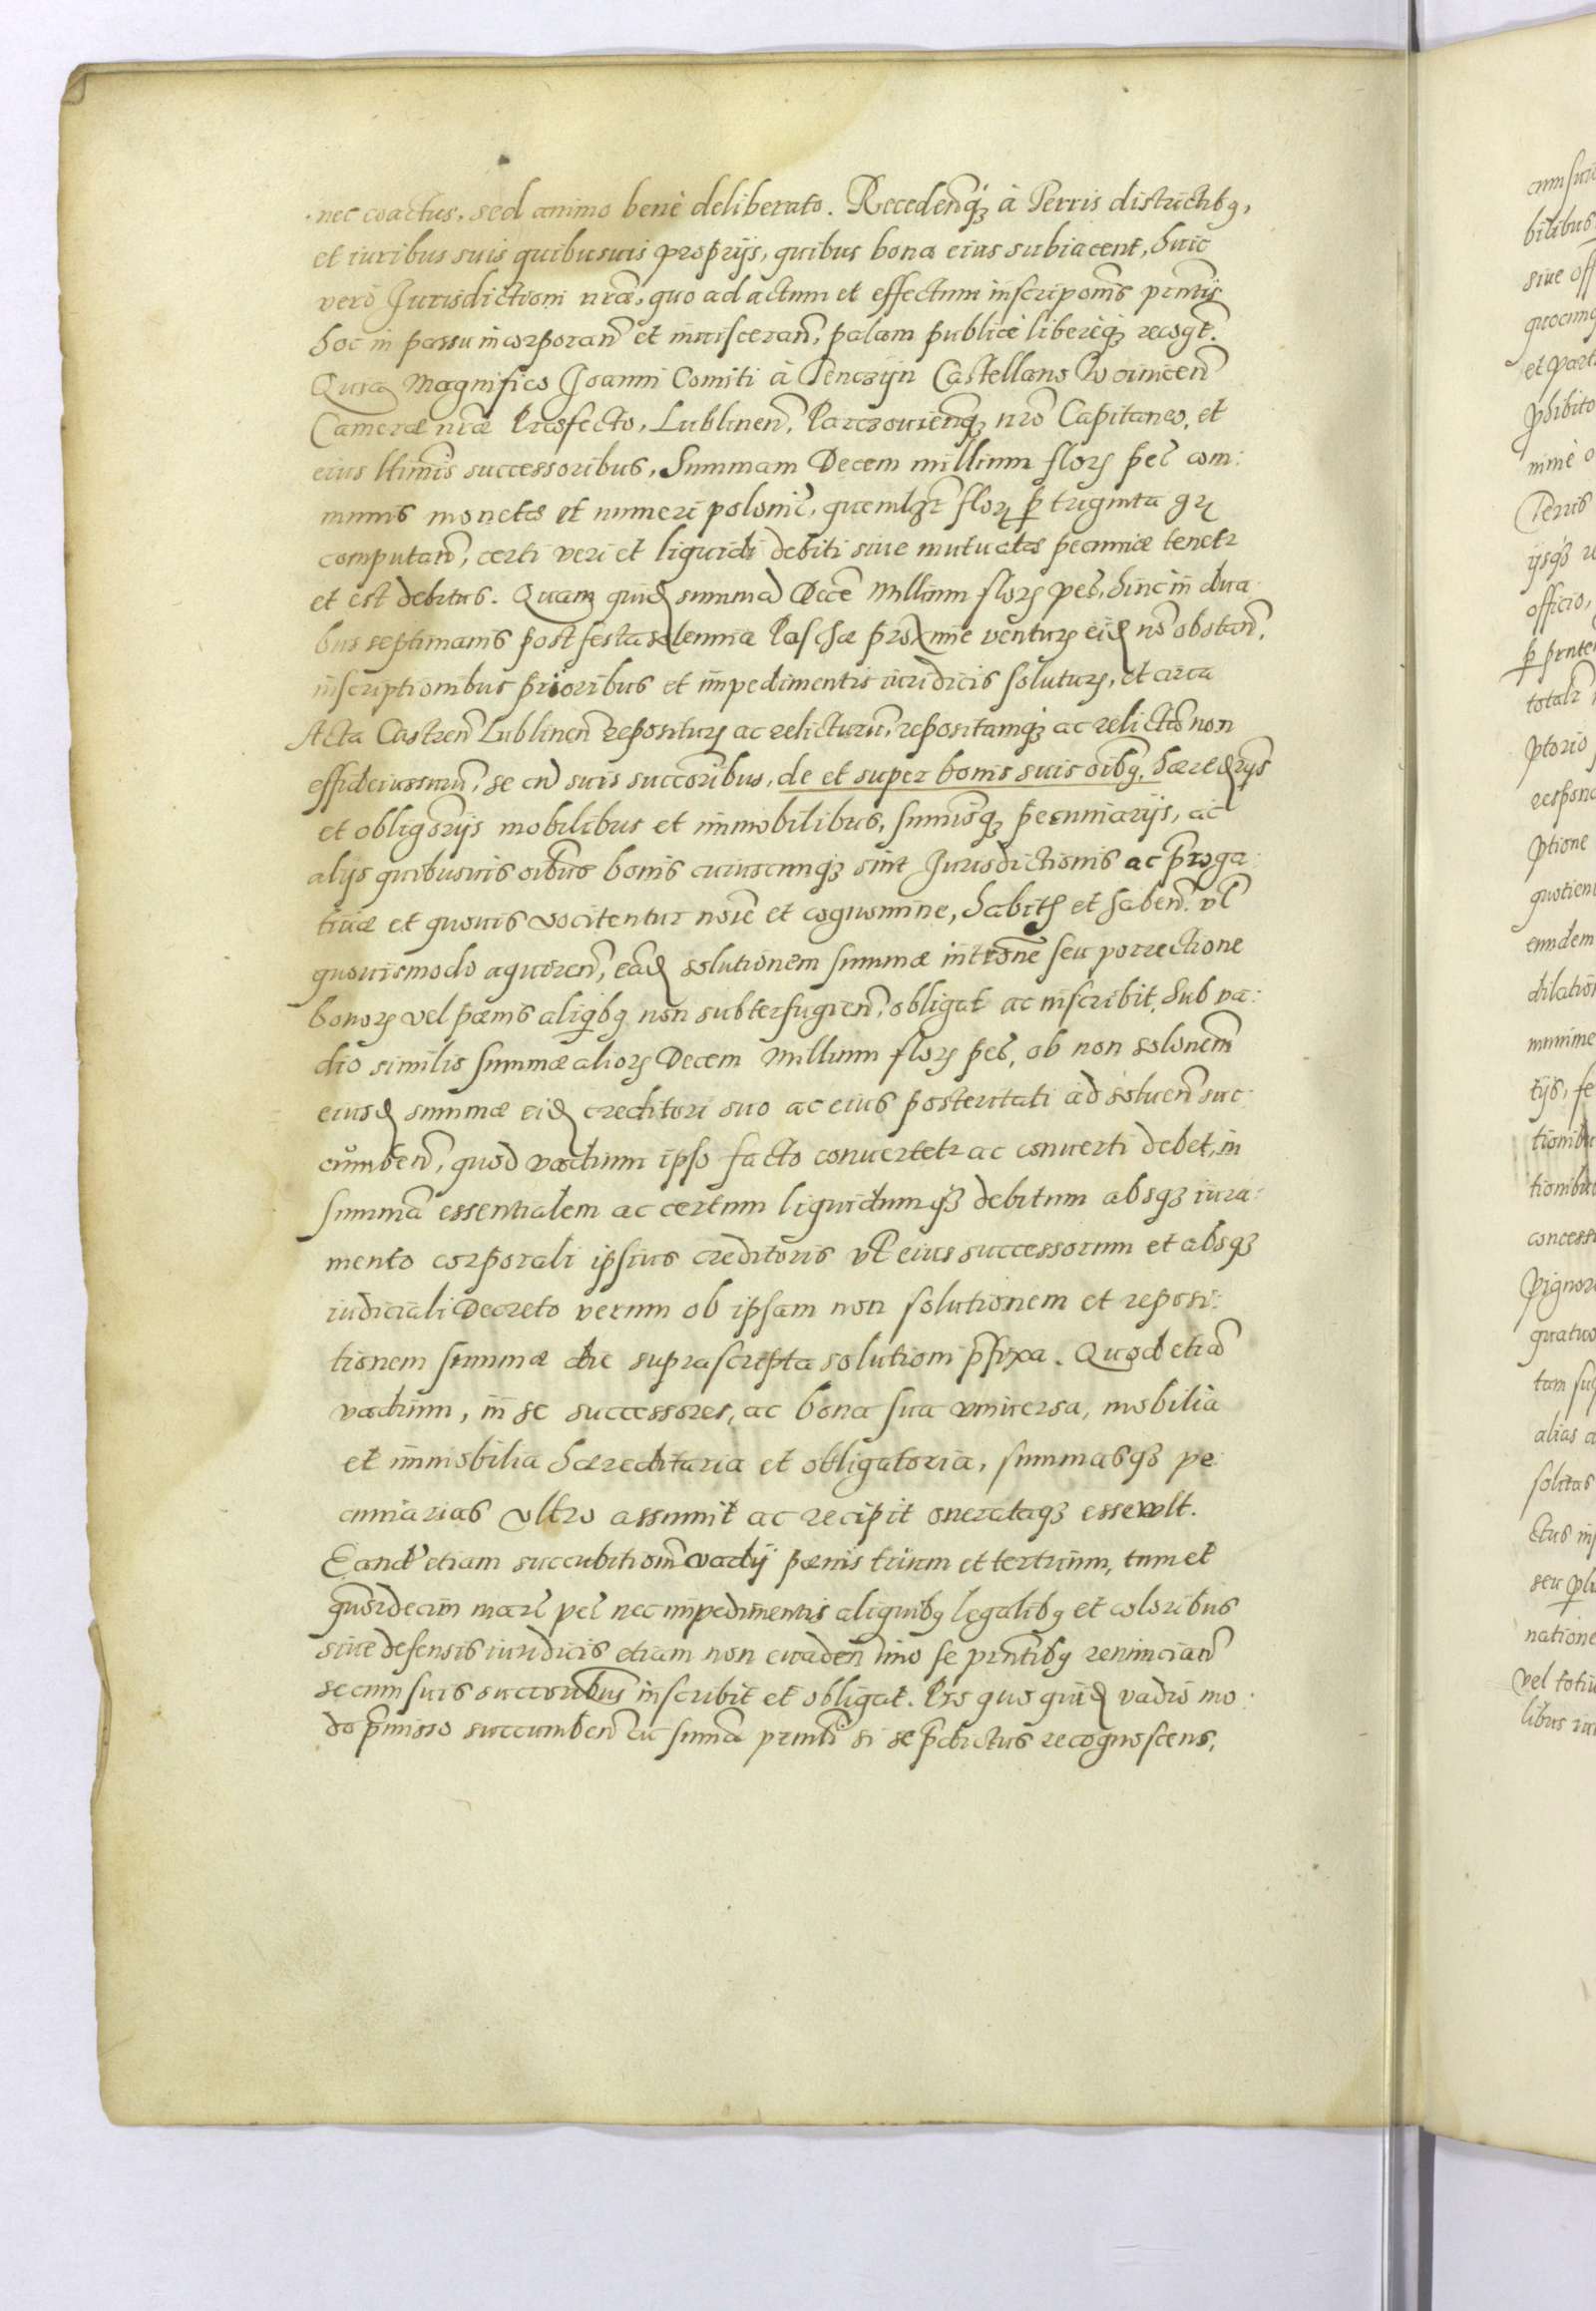 nec coactus, sed animo benè deliberato. Recedenq̃ à Terris districtibꝯ,
et iuribus suis quibusuis proprijs, quibus bona eius subiacent, huic
verò Jurisdictioni nrae, quo ad actum et effectum inscripõnis pñtis
hoc in passu incorporañ et inuisceran̄, palam publicè liberéqꝫ recogt.
Quia Magnifico Joanni Comiti à Tenczÿn Castellano Woinicen̄
Camerae nrae Praefecto, Lublinen̄, Parczouienqꝫ nr̃o Capitaneo, et
eius ltimis successoribus, Summam Decem millium florꝫ pec̃ com:
munis monetae et numeri polonic̃, quemlꝫt florꝫ ꝑ triginta grꝫ
computan̄, certi veri et liquidi debiti siue mutuatae pecuniae tenetr
et est debitus. Quam quidꝫ summã Decẽ Millium florꝫ pec̃, hinc in dua
bus septimanis post festa solennia Paschae proxime venturꝫ eidꝫ nõ obstan̄,
inscriptionibus prioribus et impedimentis iuridicis soluturꝫ, et circa
Acta Castren̄ Lublinen̄ repositurꝫ ac relicturũ, repositamqꝫ ac relictã non
effideiussurũ, se cũ suis succoribus, de et super bonis suis oĩbꝯ, haeredrijs
et obligorijs mobilibus et immobilibus, sumisqꝫ pecuniarijs, ac
alijs quibusuis oibus bonis cuiuscunqꝫ sint Jurisdictionis ac p̃roga:
tiuae et quouis vocitentur noĩe et cognomine, habitꝫ et haben̄. vl̃
quouismodo aquiren̄, eadꝫ solutionem summae intrõne seu porrectione
bonorꝫ vel paenis aliqibꝯ non subterfugien̄, obligat ac inscribit, Sub va:
dio similis summae aliorꝫ Decem Millium florꝫ pec̃, ob non solonem
eiusdꝫ summae eidꝫ creditori suo ac eius posteritati ad soluen̄ suc:
cumben̄, quod vadium ipso facto conuertetr ac conuerti debet, in
summã essentialem ac certum liquidumqꝫ debitum absqꝫ iura:
mento corporali ipsius creditoris vl̃ eius successorum et absqꝫ
iudiciali Decreto verum ob ipsam non solutionem et reposi:
tionem summae die suprascripta solutioni p̃fixa. Quod etiã
vadium, in se successores, ac bona sua vniuersa, mobilia
et immobilia haereditaria et obligatoria, summasqꝫ pe:
cuniarias vltro assumit ac recipit onerataqꝫ esse vult.
Eandꝫ etiam succubitionẽ vadij paenis trium et tertium, tum et
quordecim marc̃ pec̃ nec impedimentis aliquibꝯ legalibꝯ et coloribus
siue defensis iuridicis etiam non euaden̄ imo se pñtibꝯ renuncian̄
se cum suis succoribus inscribit et obligat. Pro quo quidꝫ vadio mo:
do p̃misso succumben̄ cũ summa prinli si se p̃dictus recognoscens,